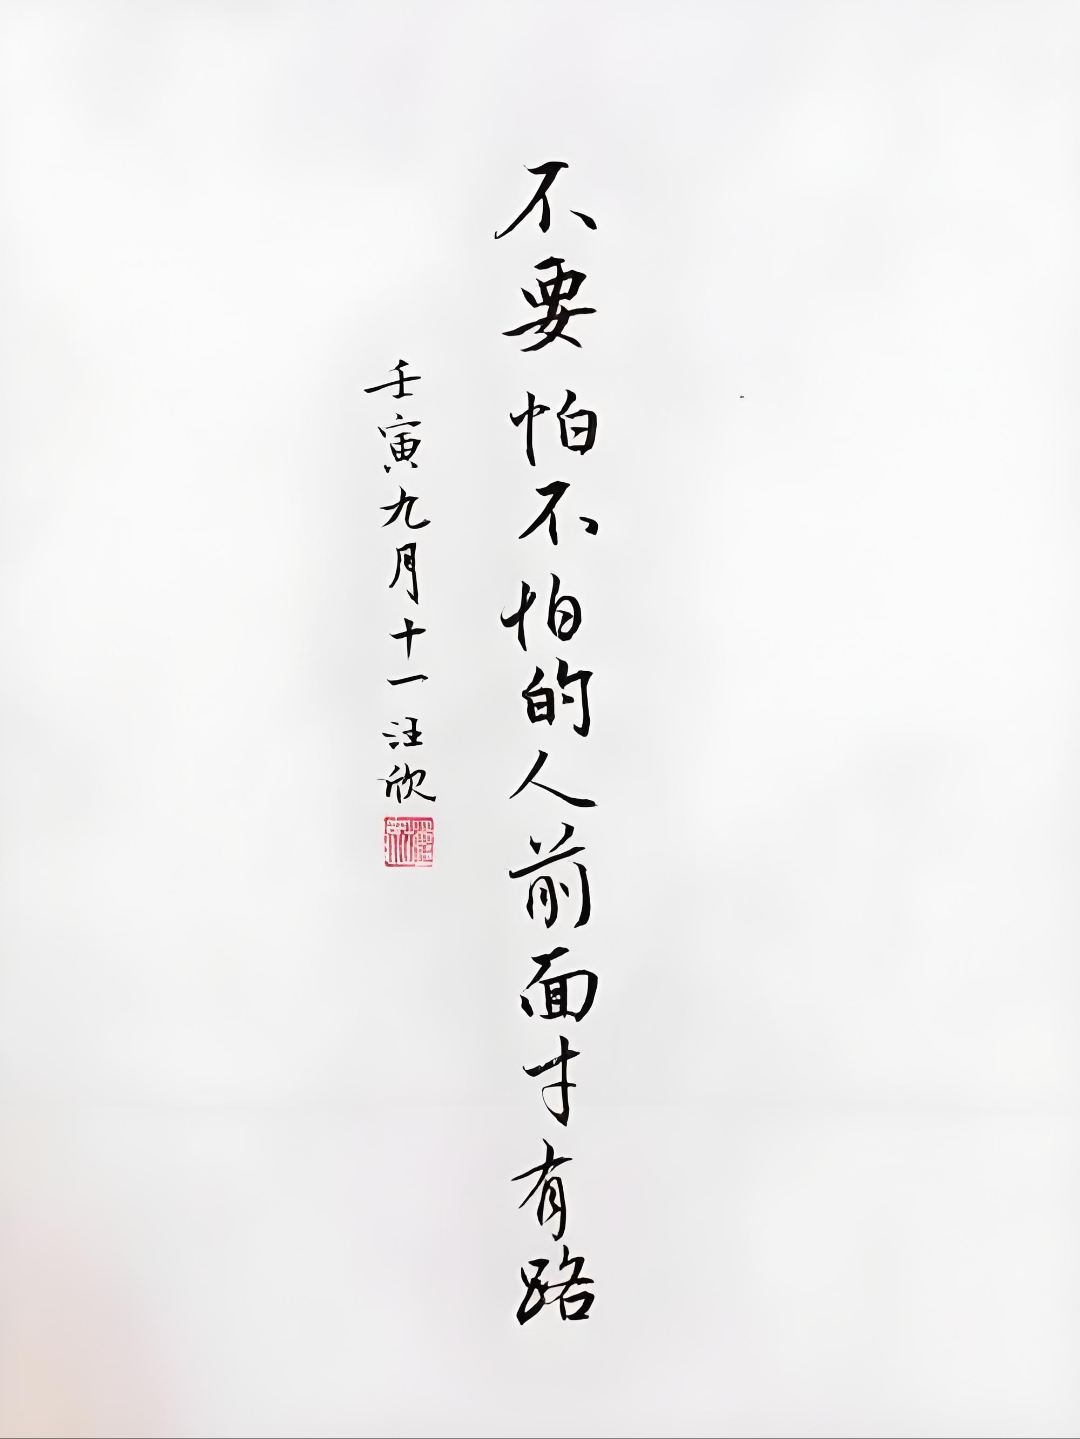 不要怕不怕的人前面才有路
壬寅九月十一汪欣